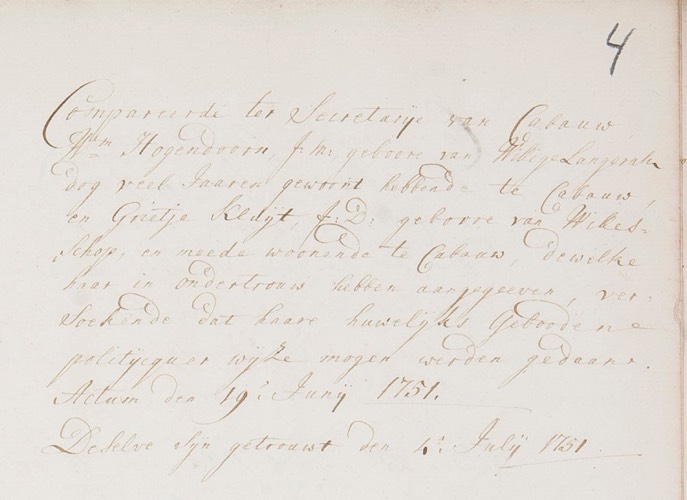 4
Compareerde ter Secretarije van Cabauw
Wm Hogendoorn, j: m: geboore van Langerak
dog veel Jaaren gewoont hebbende te Cabauw,
en Grietje Kluijt, j: D: geboore van Willes-
schop, en meede woonende te Cabauw, dewelke
haar in ondertrouw hebben aangegeeven, ver-
soekende dat haare huwelijks Geboodene
politycquer wijze mogen werden gedaan.
Actum den 19e: Junij 1751.
Deselve sijn getrouwt den 4e: Julij 1751